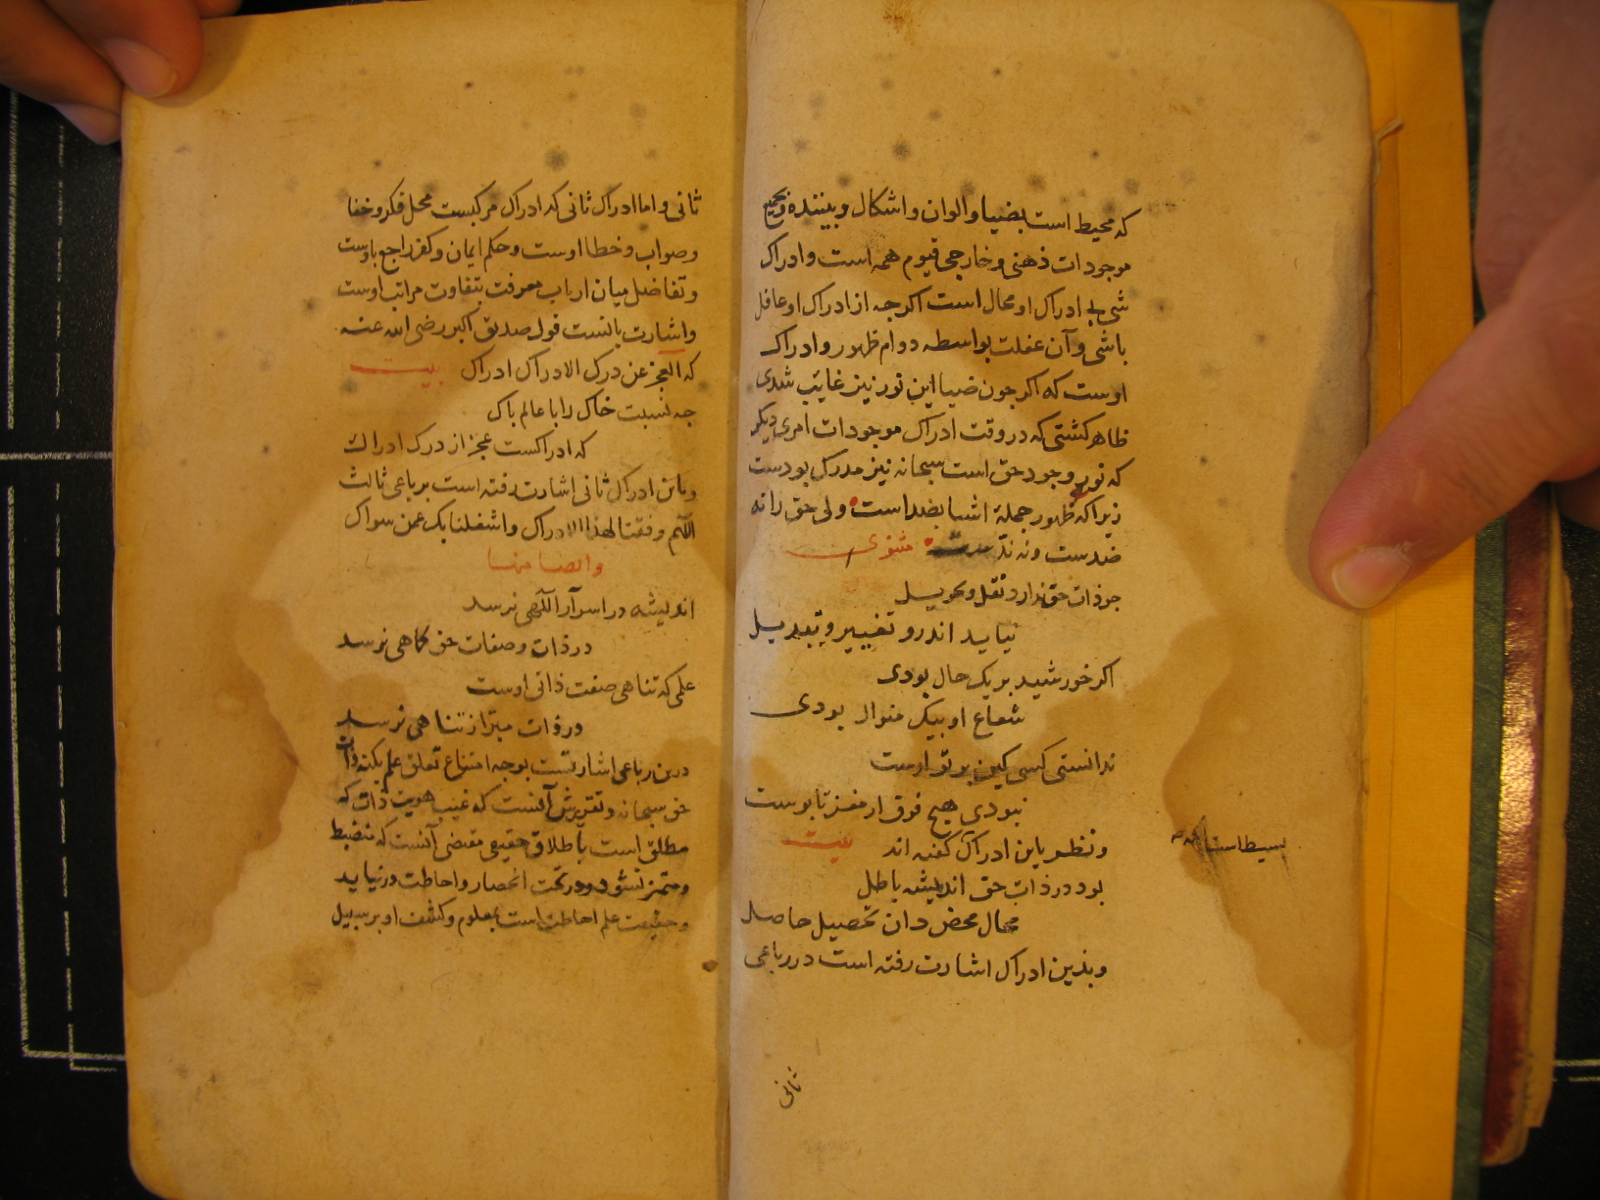 که محیط است بضیا و الوان و اشکال و بیننده و جمیع
موجودات ذهنی و خارجی قیوم همه است و ادراک
شی بی ادراک او محال است اکرجه از ادراک او غافل
باشی و آن غفلت بواسطه دوام ظهور و ادراک
اوست که اکر جون ضیا این نور نیز غایب شدی
ظاهر کشتی که در وقت ادراک موجودات امری دیکر
که نور وجود حق است سبحانه نیز مدرک بودست
زیرا که ظهور جملهٔ اشیا بضد است ولی حق را نه
ضدست و نه ند مثنوی
جو ذات حق ندارد نقل و تحویل
نیاید اندرو تغییر و تبدیل
اکر خورشید بر یک حال بودی
شعاع او بیک منوال بودی
ندانستی کسی کین پرتو اوست
نبودی هیچ فرق از مغز تا پوست
و نظر باین ادراک کفته اند بیت
بود در ذات حق اندیشه باطل
محال محض دان تحصیل حاصل
و بدین ادراک اشارت رفته است در رباعی
بسیط است
ثانی
ثانی و اما ادراک ثانی که ادراک مرکبست محل فکر و خفا
و صواب و خطا اوست و حکم ایمان و کفر راجع باوست
و تفاضل میان ارباب معرفت بتفاوت مراتب اوست
و اشارت بانست قول صدیق اکبر رضی الله عنه
که العجز عن درک الادراک ادراک بیت
جه نسبت خاک را با عالم پاک
که ادراکست عجز از درک ادراک
و باین ادراک ثانی اشارت رفته است برباعی ثالث
اللهم وفقنا لهذا الادراک و اشغلنا بک عمن سواک
و ایضا منها
اندیشه در اسرار الهی نرسد
در ذات و صفات حق کماهی نرسد
علمی که تناهی صفت ذاتی اوست
در ذات مبرا ز تناهی نرسد
درین رباعی اشارتست بوجه امتناع تعلق علم بکنه ذات
حق سبحانه و تقریرش آنست که غیب هویت ذات که
مطلق است باطلاق حقیقی مقتضی آنست که منضبط
و متمیز نشود و در تحت انحصار و احاطت درنیاید
و حقیقت علم احاطت است بمعلوم و کشف او بر سبیل